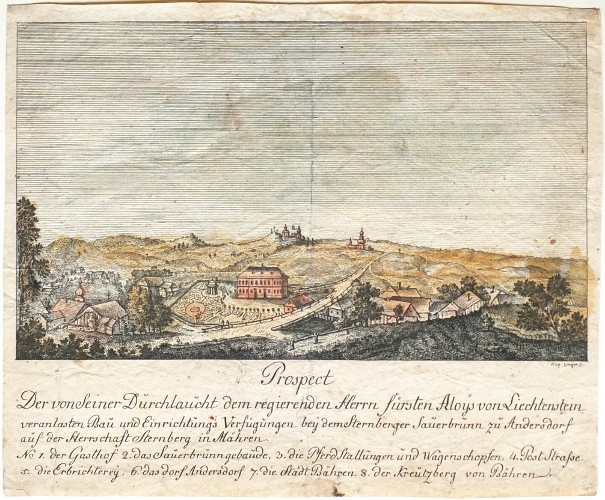 Prospect
Der von Seiner Dürchlaücht dem regierenden Herrn fürsten Aloys von Liechtenstein
veranlasten Baü und Einrichtüngs Verfügüngen beÿ dem Sternberger Saüerbrünn zu Andersdorf
auf der Herrschaft Sternberg in Mähren
No 1. der Gasthof 2. das Saüerbrünngebaüde, 3. die Pferd Stallüngen ünd Wagenschopfen 4. Post Strasse
5. die Erbrichtereÿ, 6 das dorf Andersdorf 7. die Stadt Bähren 8. der Kreützberg von Bähren